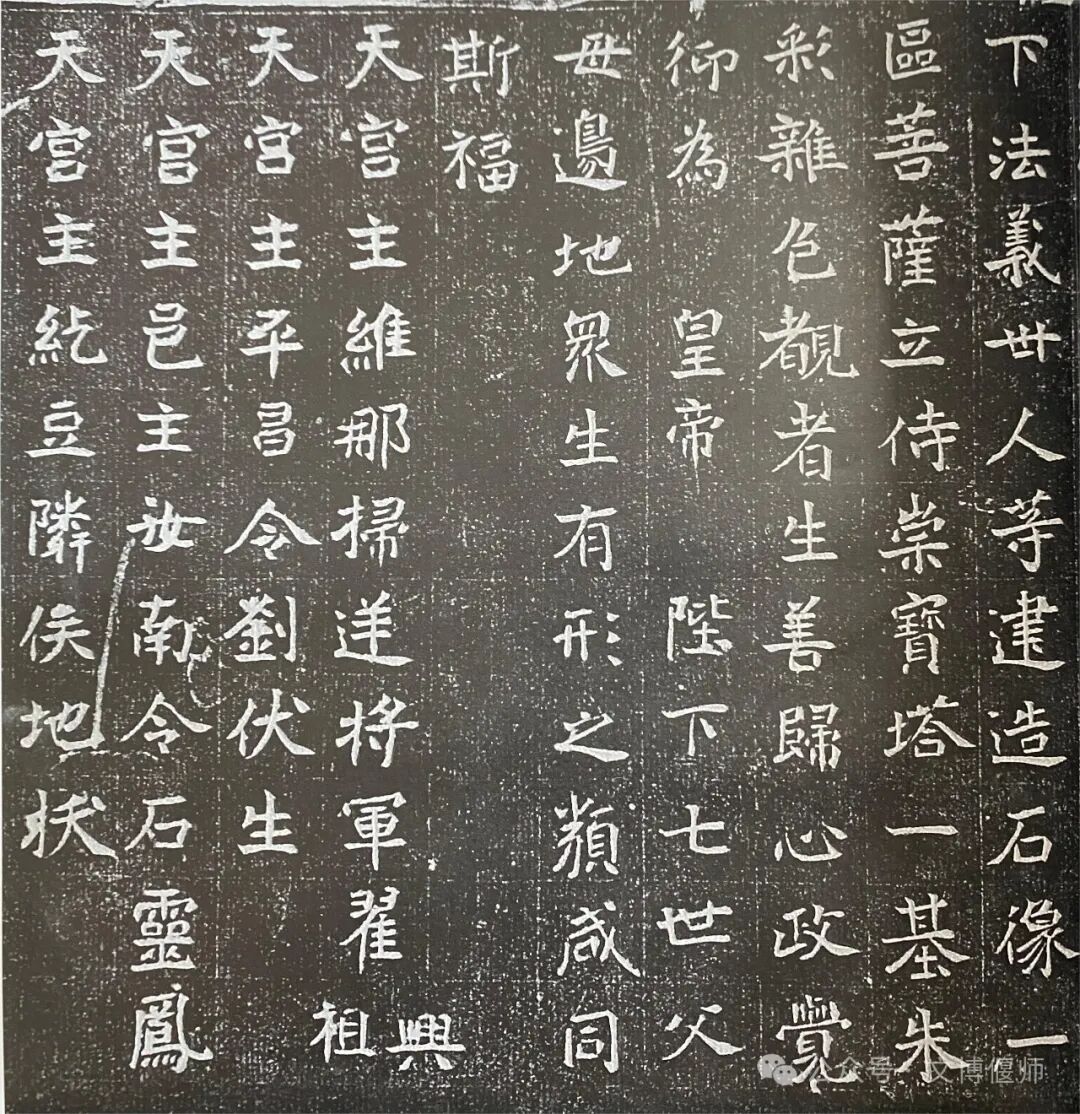 下法義卅人等建造石像一
區菩薩立侍崇寶塔一基朱
彩雜色覩者生善歸心政覺
仰為 皇帝 陛下七世父
母邊地眾生有形之類咸同
斯福
天宮主維那掃逆將軍翟興祖
天宮主平昌令劉伏生
天宮主邑主汝南令石靈鳳
天宮主紇豆隣俟地拔
公众号 文博偃师